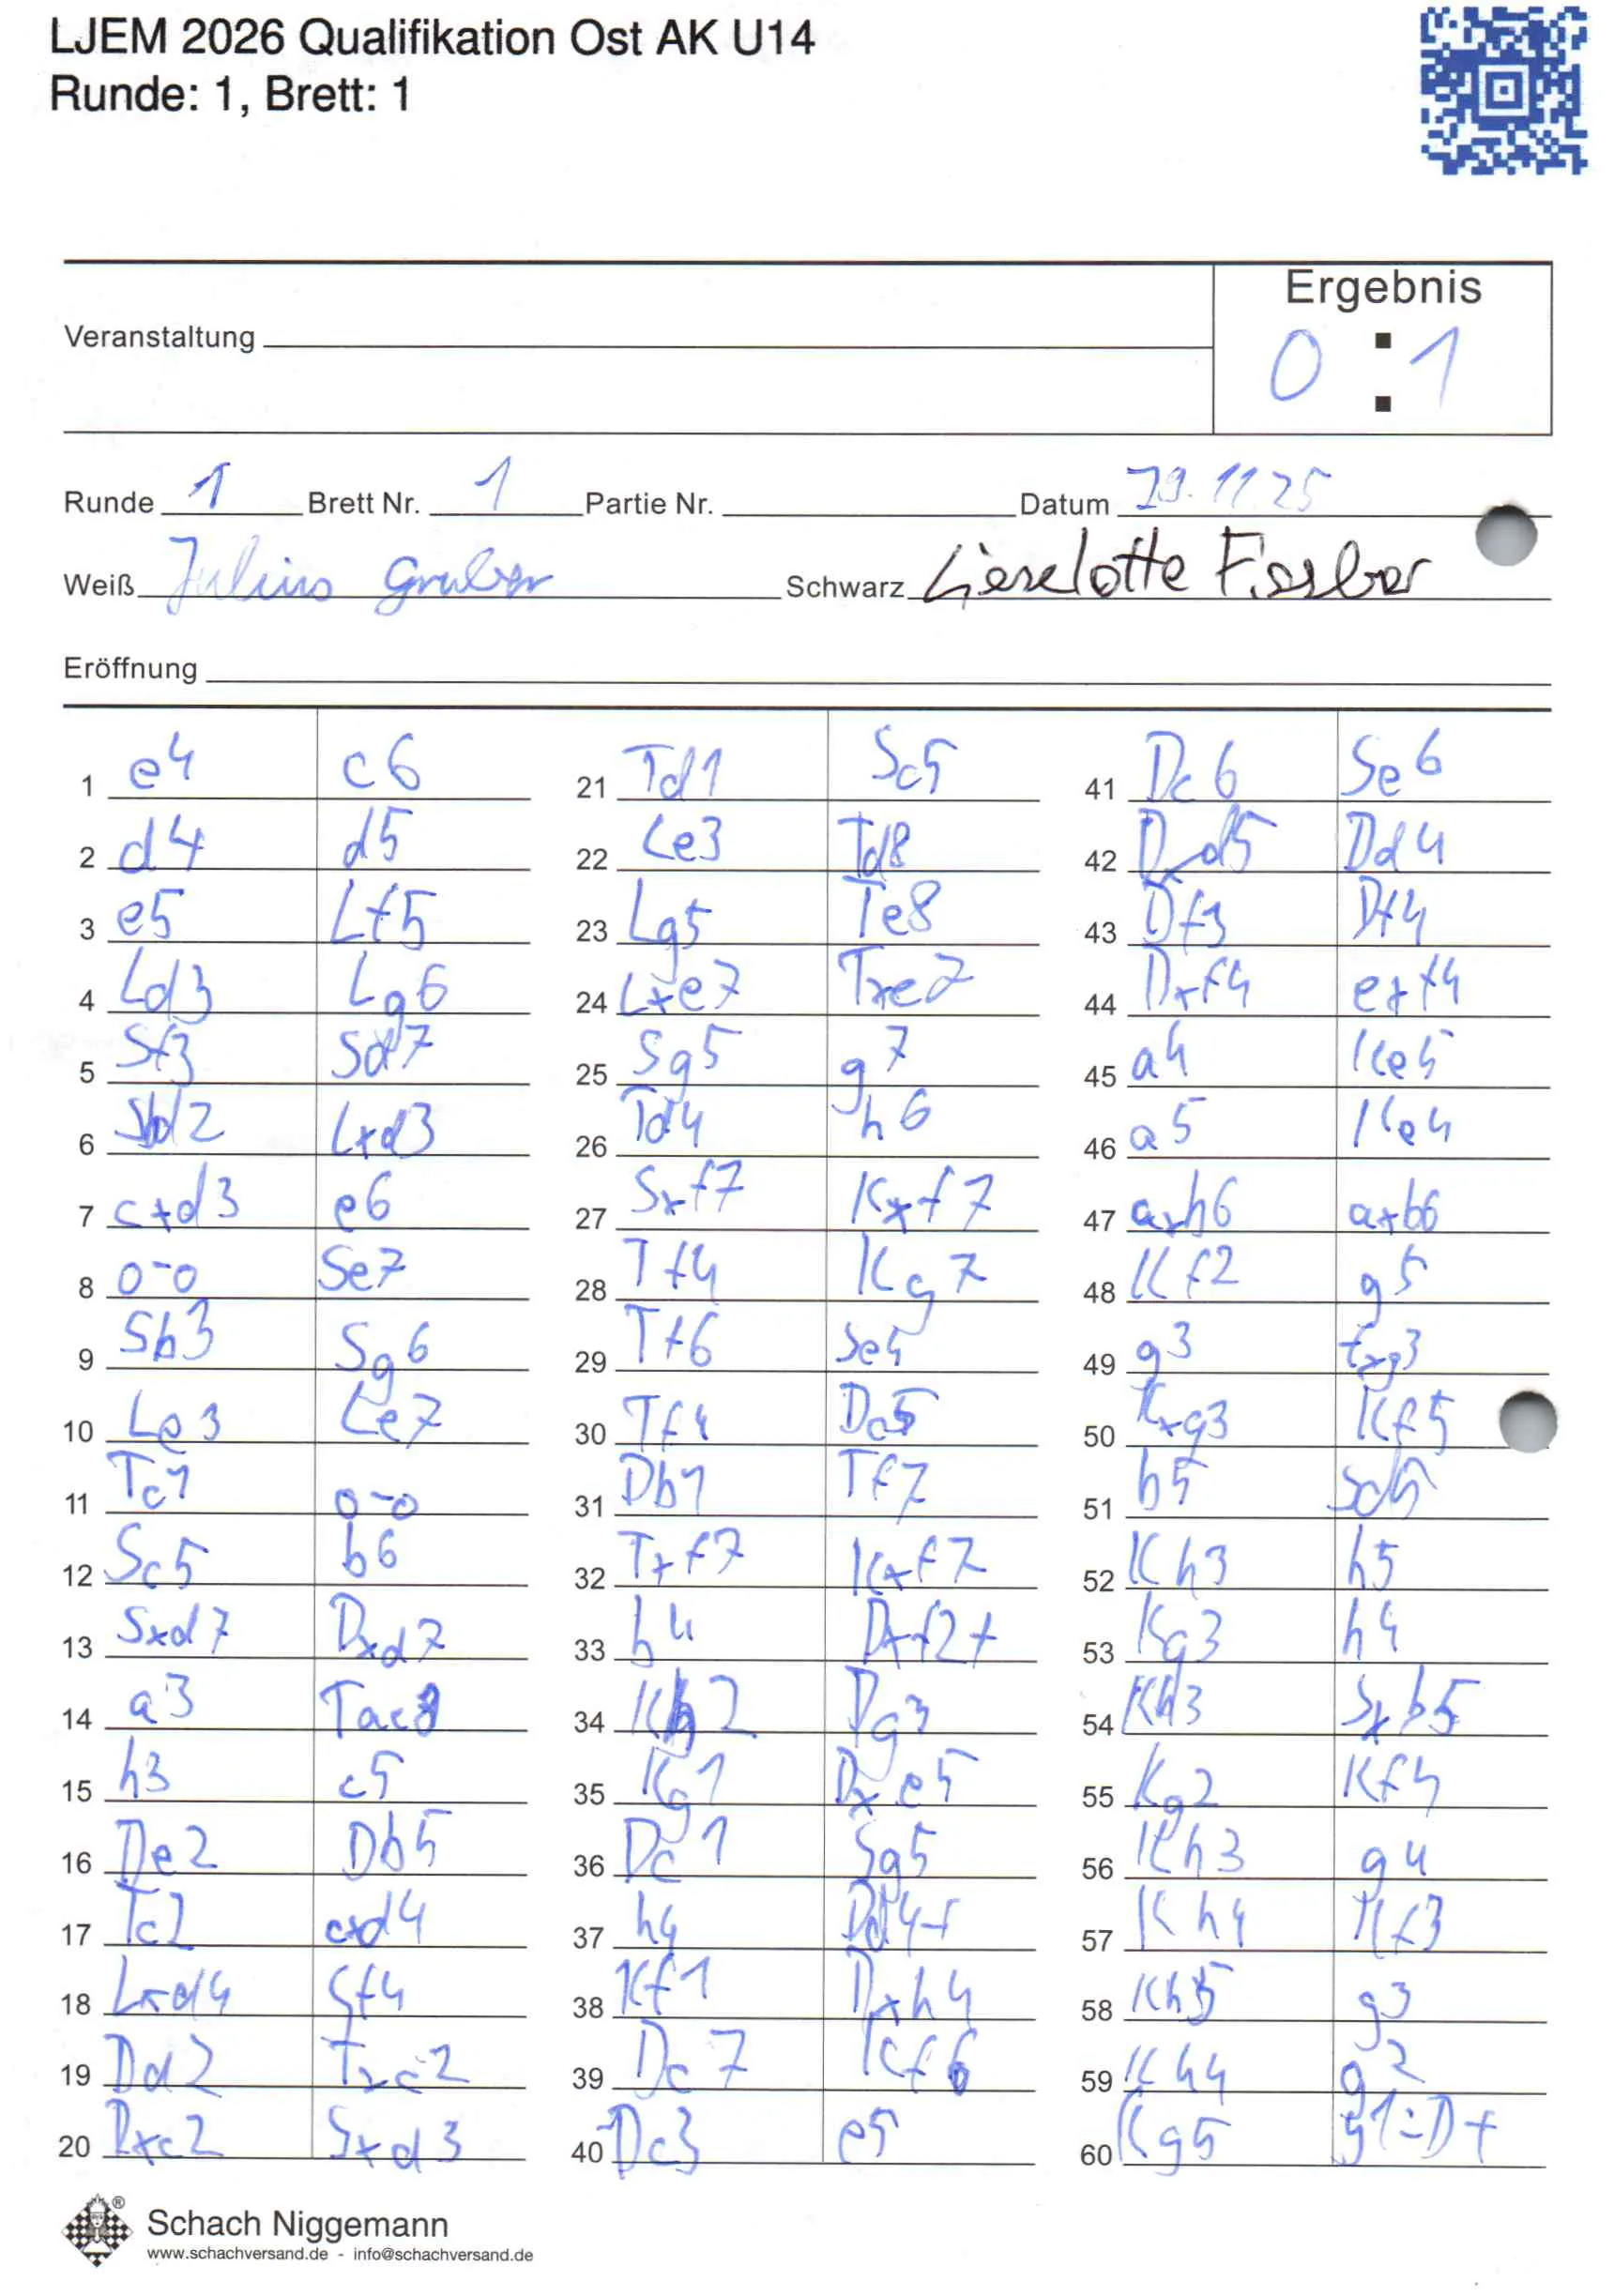 LJEM 2026 Qualifikation Ost AK U14
Runde: 1, Brett: 1
Ergebnis
0 : 1
Veranstaltung
Runde 1 Brett Nr. 1 Partie Nr. Datum 29.11.25
Weiß Julius Gruber Schwarz Lieselotte
Eröffnung
1 e4 c6
2 d4 d5
3 e5 Lf5
4 Ld3 Lg6
5 Sf3 Sd7
6 Sbd2 Lxd3
7 cxd3 e6
8 0-0 Se7
9 Sb3 Sg6
10 Le3 Le7
11 Tc1 0-0
12 Sc5 b6
13 Sxd7 Dxd7
14 a3 Tac8
15 h3 c5
16 De2 Db5
17 Tc2 cxd4
18 Lxd4 Sf4
19 Dd2 Txc2
20 Dxc2 Sxd3
21 Td1 Sc5
22 Le3 Td8
23 Lg5 Te8
24 Lxe7 Txe7
25 Sg5 g7
26 Td4 h6
27 Sxf7 Kxf7
28 Tf4 Kg7
29 Tf6 Se4
30 Tf4 Dc5
31 Db1 Tf7
32 Txf7 Kxf7
33 b4 Dxf2+
34 Kh2 Dg3
35 Kg1 Dxe5
36 Dc1 Sg5
37 h4 Dd4+
38 Kf1 Dxh4
39 Dc7 Kf6
40 Dc3 e5
41 Dc6 Se6
42 Dxd5 Dd4
43 Df3 Df4
44 Dxf4 exf4
45 a4 Ke5
46 a5 Ke4
47 axb6 axb6
48 Kf2 g5
49 g3 fxg3
50 Kxg3 Kf5
51 b5 Sd4
52 Kh3 h5
53 Kg3 h4
54 Kh3 Sxb5
55 Kg2 Kf4
56 Kh3 g4
57 Kh4 Kf3
58 Kh5 g3
59 Kh4 g2
60 Kg5 g1=D+
Schach Niggemann
www.schachversand.de - info@schachversand.de